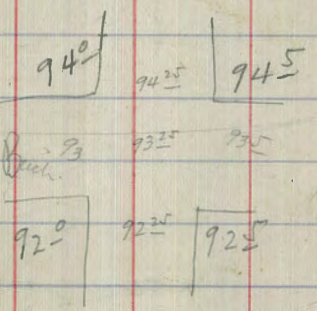 94⁰ 94²⁵ 94⁵
93 93²⁵ 93⁵
92⁰ 92²⁵ 92⁵